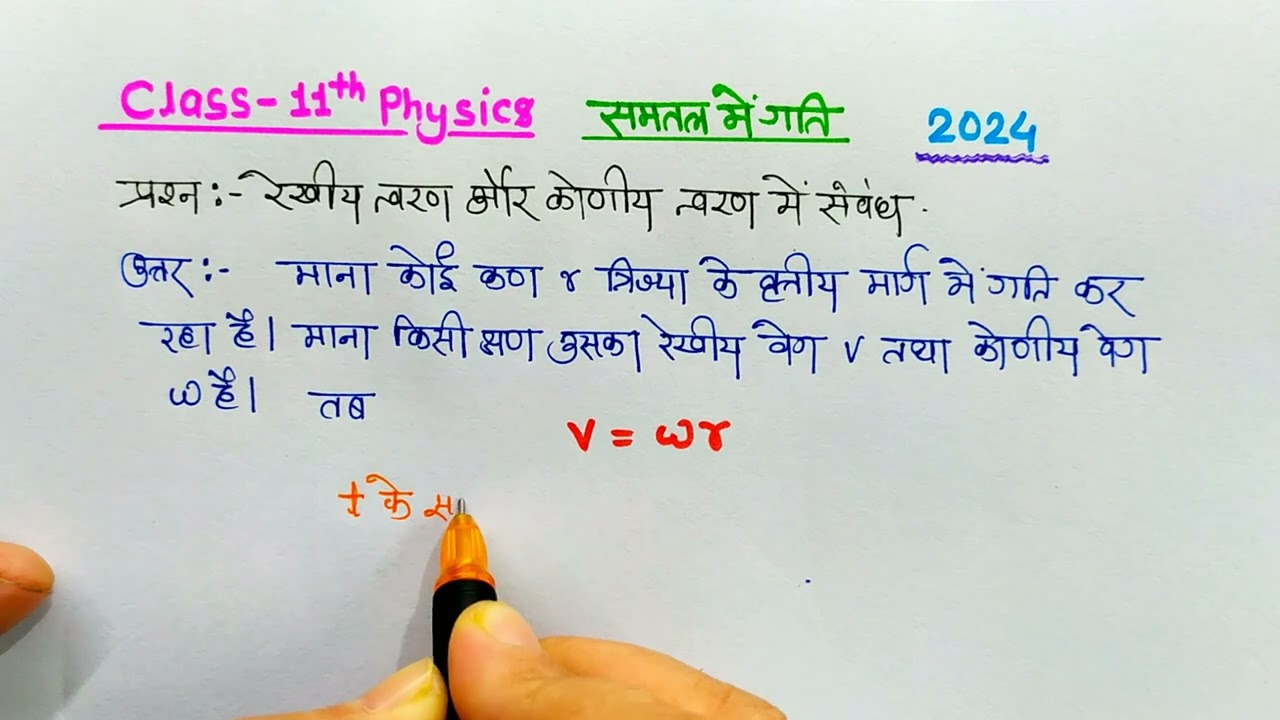 Class-11th Physics समतल में गति 2024
प्रश्न :- रेखीय त्वरण और कोणीय त्वरण में संबंध .
उत्तर :- माना कोई कण r त्रिज्या के वृत्तीय मार्ग में गति कर
रहा है। माना किसी क्षण उसका रेखीय वेग v तथा कोणीय वेग
ω है। तब
v = ωr
t के स